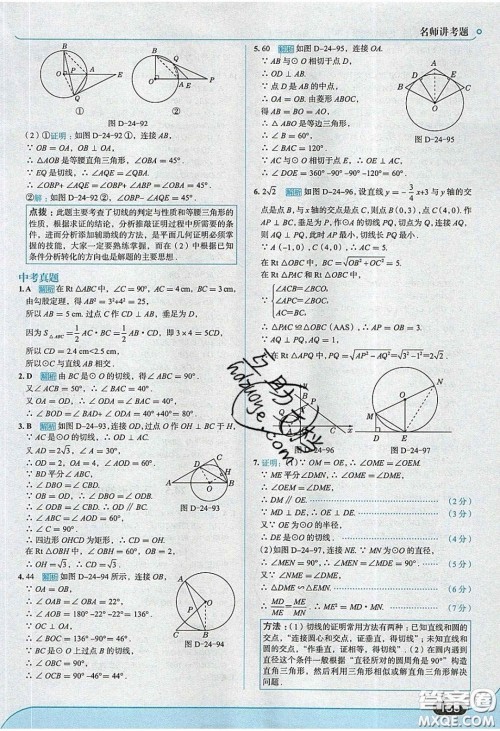 名师讲考题
① ②
图 D-24-92
(2)①证明:如图 D-24-92 ①,连接 AB,
∵ OB = OA, OB ⊥ OA,
∴ △AOB 是等腰直角三角形, ∠OBA = 45°.
∵ EQ 是切线, ∴ ∠AQE = ∠QBA.
∴ ∠OBP + ∠AQE = ∠OBP + ∠ABP = ∠OBA = 45°.
②解:如图 D-24-92 ②, ∠OBP - ∠AQE = 45°.
点拨:此题主要考查了切线的判定与性质和等腰三角形的
性质,根据求证的结论,分析推敲证明过程中所需要的条
件,进而分析添加辅助线的方法,是平面几何证明必须掌
握的技能,大家一定要熟练掌握,而在(2)中根据已知
条件分析转化的方向也是解题的主要思想.
中考真题
1. A 解析 在 Rt△ABC 中, ∠C = 90°, AC = 4 cm, BC = 3 cm,
由勾股定理,得 AB² = 3²+4² = 25,
所以 AB = 5 cm. 过点 C 作 CD ⊥ AB,垂足为 D,
因为 S△ABC = 1/2 AC·BC = 1/2 AB·CD, 即 3×4 = 5CD,
所以 CD = 2.4 cm<2.5 cm,
所以⊙C 与直线 AB 相交.
2. D 解析 由 BC 是⊙O 的切线,得∠ABC = 90°.
又∠ACB = 50°, ∴ ∠A = 40°.
又 OA = OD, ∴ ∠ODA = ∠OAD = 40°.
∴ ∠BOD = ∠BAD+ ∠ODA = 40°+40° = 80°.
3. B 解析 如图 D-24-93,连接 OD,过点 O 作 OH ⊥ BC 于 H.
∵ AC 是⊙O 的切线, ∴ OD ⊥ AC.
又 AD = 2√3, ∠A = 30°,
∴ OD = 2, OA = 4, ∠AOD = 60°.
∵ BD 平分∠ABC,
∴ ∠OBD = ∠DBC.
∵ OB = OD, ∴ ∠OBD = ∠ODB.
∴ ∠ODB = ∠DBC. ∴ OD∥BC.
∴ ∠ABC = ∠AOD = 60°,
∴ ∠C = 90°.
图 D-24-93
∴ 四边形 OHCD 为矩形, ∴ CD = OH.
在 Rt△OBH 中, ∠OBH = 60°, OB = 2,
∴ OH = √3, ∴ CD = √3.
4. 44 解析 如图 D-24-94 所示,连接 OB.
∵ OA = OB,
∴ ∠OAB = ∠OBA = 22°,
∴ ∠AOB = 180°-22°-22° = 136°.
∵ OC ⊥ OA,
∴ ∠BOC = 136°-90° = 46°.
∵ BC 是⊙O 上过点 B 的切线,
∴ ∠OBC = 90°,
∴ ∠OCB = 90°-46° = 44°.
图 D-24-94
5. 60 解析 如图 D-24-95,连接 OA.
∵ AB 与⊙O 相切于点 D,
∴ OD ⊥ AB.
∵ 点 D 是 AB 的中点,
∴ OA = OB. 由菱形 ABOC,
得 AB = BO = AO,
∴ △ABO 是等边三角形.
∴ ∠B = 60°,
∴ ∠BAC = 120°.
图 D-24-95
∵ AC 与⊙O 相切于点 E, ∴ OE ⊥ AC,
∴ ∠DOE = 360°-90°-90°-120° = 60°.
6. 2√2 解析 如图 D-24-96,设直线 y = -3/4 x+3 与 y 轴的交
点是点 B,与 x 轴的交点是点 C,则点 B(0,3),点 C(4,0).作
AP ⊥ BC,垂足为 P,作⊙A 的切线 PQ,切点为 Q,连接 AQ,
则 AQ ⊥ PQ,此时 AP 最小,切线长 PQ 最小.
∵ A(-1,0), C(4,0), ∴ AC = 5.
在 Rt△OBC 中, BC = √(OB²+OC²) = 5.
在△APC 与△BOC 中,
∵ ∠ACB=∠BCO,
∠APC=∠BOC,
AC=BC,
∴ △PAC ≌ △OBC(AAS), ∴ AP = OB = 3.
∵ AQ = 1,
∴ 在 Rt△APQ 中, PQ = √(AP²-AQ²)=√(3²-1²)=2√2.
互助作业
hdzuoye.com
图 D-24-96 图 D-24-97
7. 证明:(1)∵ OM = OE, ∴ ∠OME = ∠OEM.
∵ ME 平分∠DMN, ∴ ∠OME = ∠DME,
∴ ∠OEM = ∠DME,
∴ DM∥OE. (2分)
∵ MD ⊥ DE, ∴ OE ⊥ DE. (3分)
又∵ OE 为⊙O 的半径,
∴ DE 是⊙O 的切线. (4分)
(2)如图 D-24-97,连接 NE. ∵ MN 为⊙O 的直径,
∴ ∠MEN = 90°, ∴ ∠MEN = ∠MDE = 90°. (5分)
又∵ ∠NME = ∠DME,
∴ △DME ∽ △EMN. (6分)
∴ MD/ME = ME/MN, ∴ ME² = MD·MN. (7分)
方法:(1)切线的证明常用方法有两种:已知直线和圆
的交点,“连接圆心和交点,证垂直,得切线”;未知直线和
圆的交点,“作垂直,证相等,得切线”.(2)在圆内遇到
直径这个条件一般根据“直径所对的圆周角是90°”构造
直角三角形,然后利用三角形相似或解直角三角形解决
问题.
答案圈
MXQE.COM